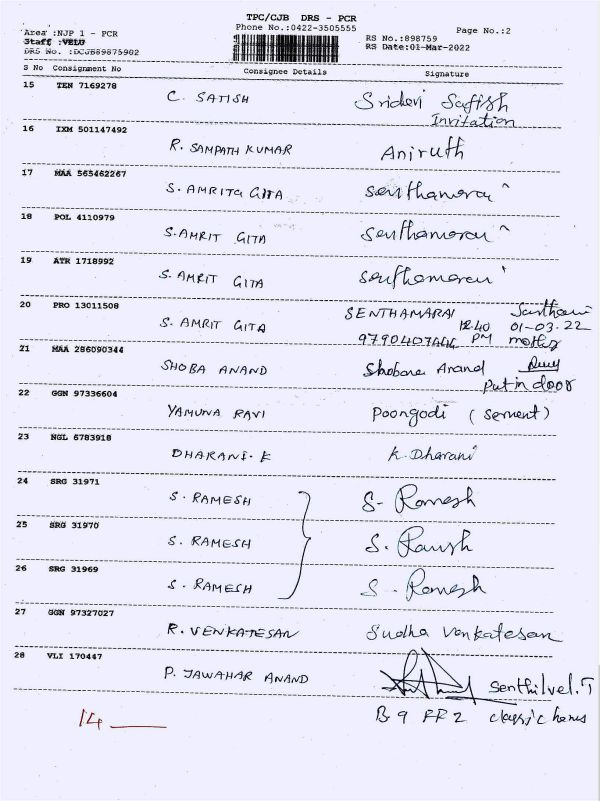 TPC/CJB DRS - PCR
Area :NJP 1 - PCR Phone No.:0422-3505555 Page No.:2
Staff :VELU RS No.:898759
DRS No. :DCJB89875902 RS Date:01-Mar-2022
S No Consignment No Consignee Details Signature
15 TEN 7169278 C. SATISH Sridevi Satish
Invitation
16 IXM 501147492 R. SAMPATH KUMAR Aniruth
17 MAA 565462267 S. AMRITA GITA Senthamarai
18 POL 4110979 S. AMRIT GITA Senthamarai
19 ATR 1718992 S. AMRIT GITA Senthamarai
20 PRO 13011508 S. AMRIT GITA SENTHAMARAI
12.40 PM 01-03.22
mother
21 MAA 286090344 SHOBA ANAND Shobana Anand
Put in door
22 GGN 97336604 YAMUNA RAVI Poongodi (Servent)
23 NGL 6783918 DHARANI. K K. Dharani
24 SRG 31971 S. RAMESH S. Ramesh
25 SRG 31970 S. RAMESH S. Ramesh
26 SRG 31969 S. RAMESH S. Ramesh
27 GGN 97327027 R. VENKATESAN Sudha Venkatesan
28 VLI 170447 P. JAWAHAR ANAND Senthilvel.T
14 B9 FF2 classic homes